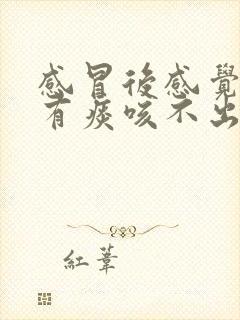 感冒後感覺
有痰咳不出
紅葦